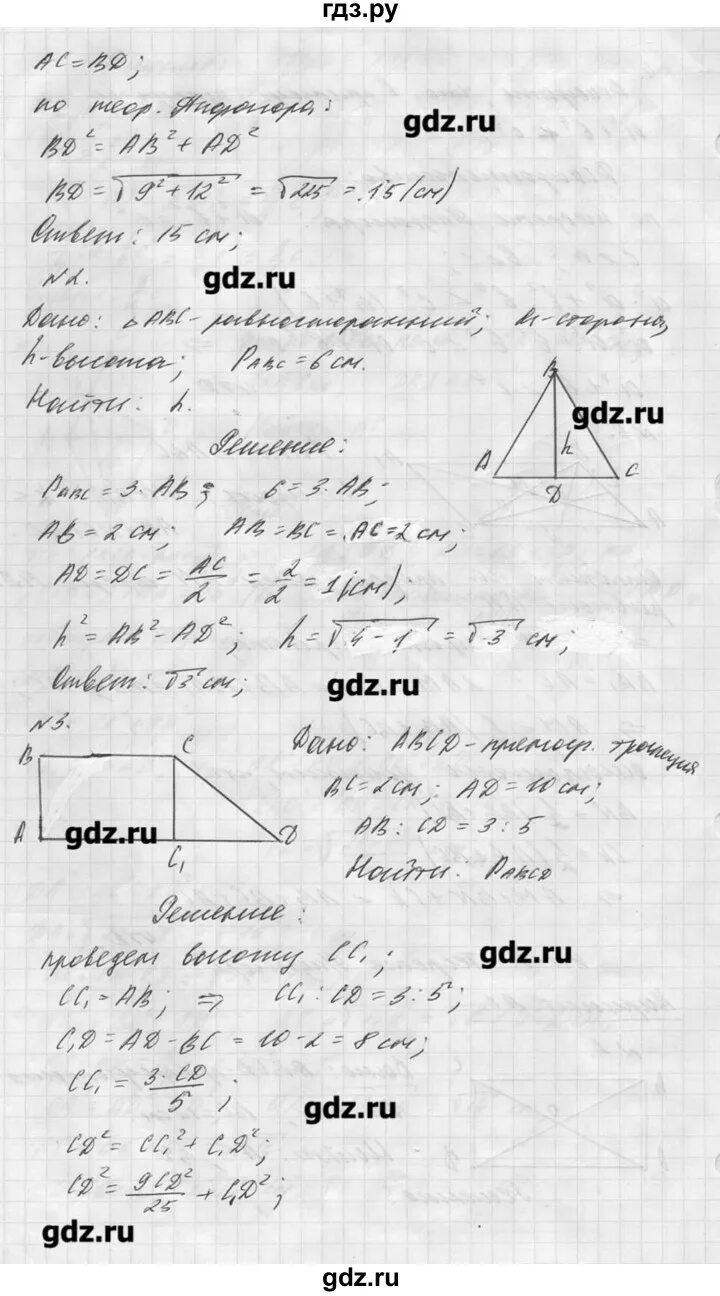 гдз.ру
AC = BD;
по теор. Пифагора:
gdz.ru
BD² = AB² + AD²
BD = √9² + 12² = √225 = 15 (см)
Ответ: 15 см;
N2.
gdz.ru
Дано: △ABC - равносторонний; a - сторона,
h - высота; P ABC = 6 см.
Найти: h.
B
gdz.ru
Решение:
A h C
D
P ABC = 3 · AB; 6 = 3 · AB;
AB = 2 см; AB = BC = AC = 2 см;
AD = DC = AC/2 = 2/2 = 1 (см),
h² = AB² - AD²; h = √4 - 1 = √3 см;
Ответ: √3 см;
gdz.ru
N3.
B C
Дано: ABCD - прямоуг. трапеция
BC = 2 см; AD = 10 см;
A gdz.ru D
AB : CD = 3 : 5
C₁
Найти: P ABCD
Решение:
проведем высоту CC₁;
gdz.ru
CC₁ = AB; ⇒ CC₁ : CD = 3 : 5;
C₁D = AD - BC = 10 - 2 = 8 см;
CC₁ = 3·CD/5;
gdz.ru
CD² = CC₁² + C₁D²;
CD² = 9CD²/25 + C₁D²;
gdz.ru
gdz.ru